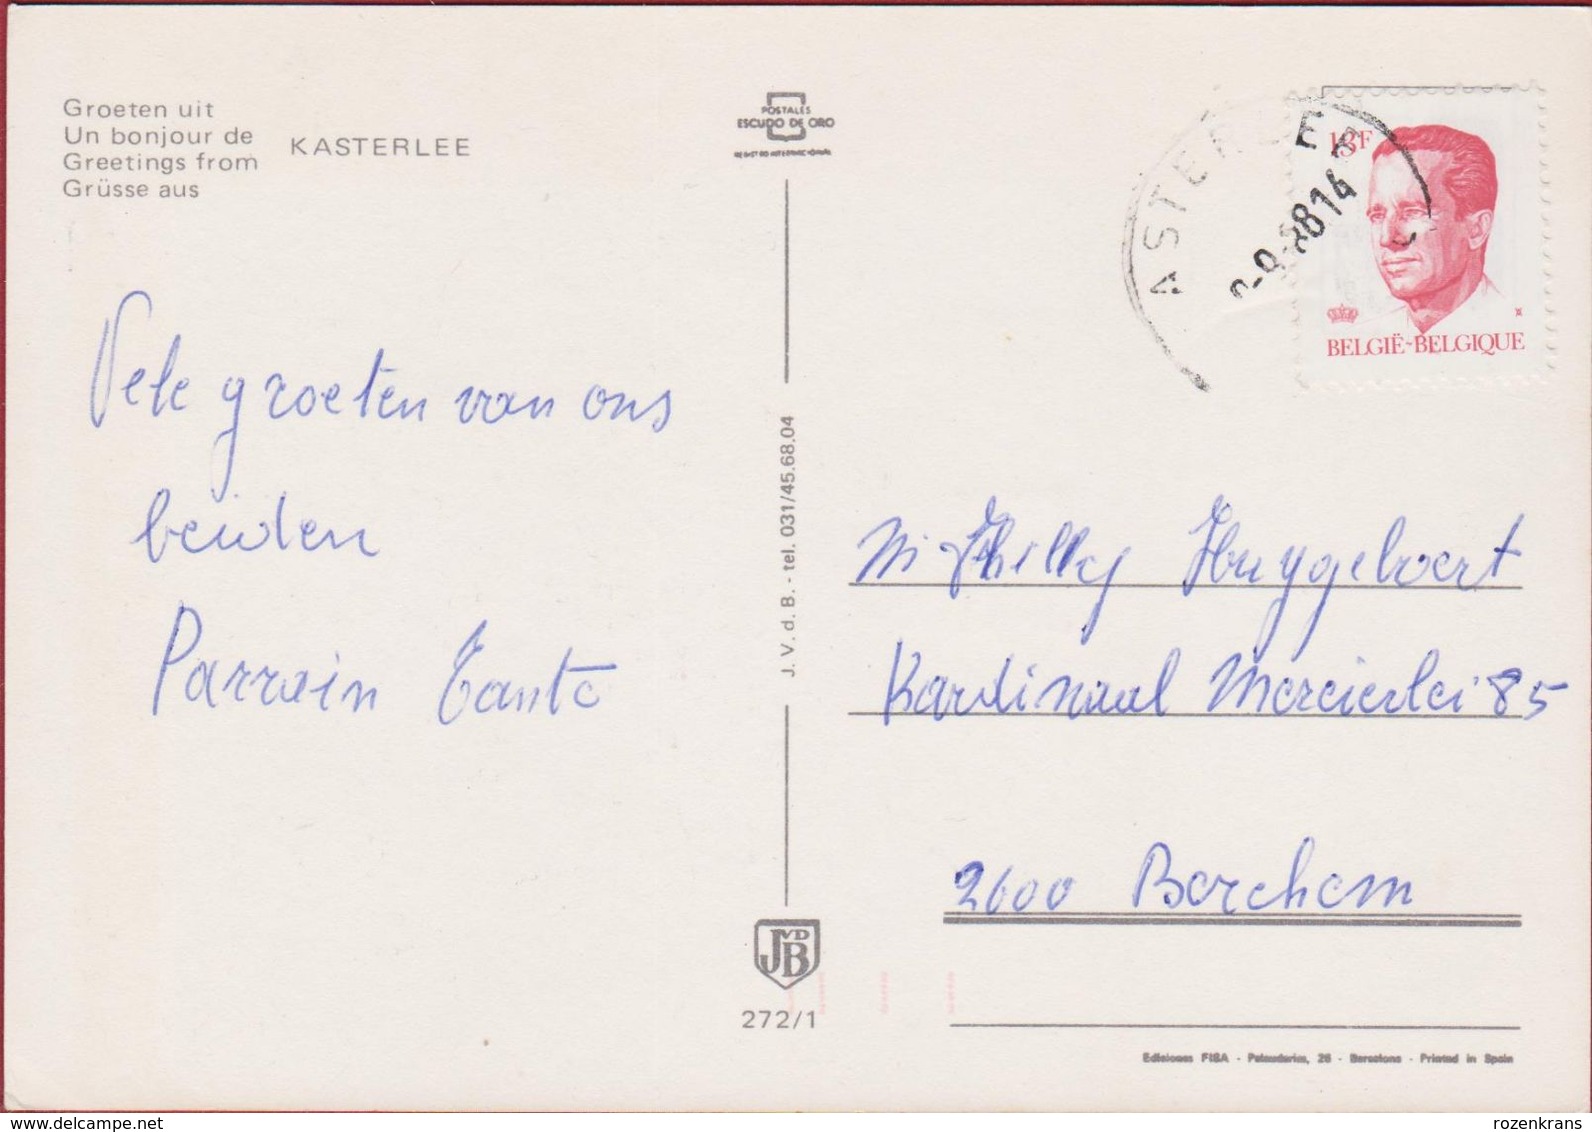 Groeten uit
Un bonjour de
Greetings from
Grüsse aus
KASTERLEE
POSTALES
ESCUDO DE ORO
13F
BELGIË-BELGIQUE
ASTERLEE
-9-8814
Vele groeten van ons
beiden
Parrain Tante
J. V. d. B. - tel. 031/45.68.04
Kardinaal Mercierlei 85
2600 Berchem
JVDB
272/1
Ediciones FISA - Palaudarias, 26 - Barcelona - Printed in Spain
www.delcampe.net
rozenkrans